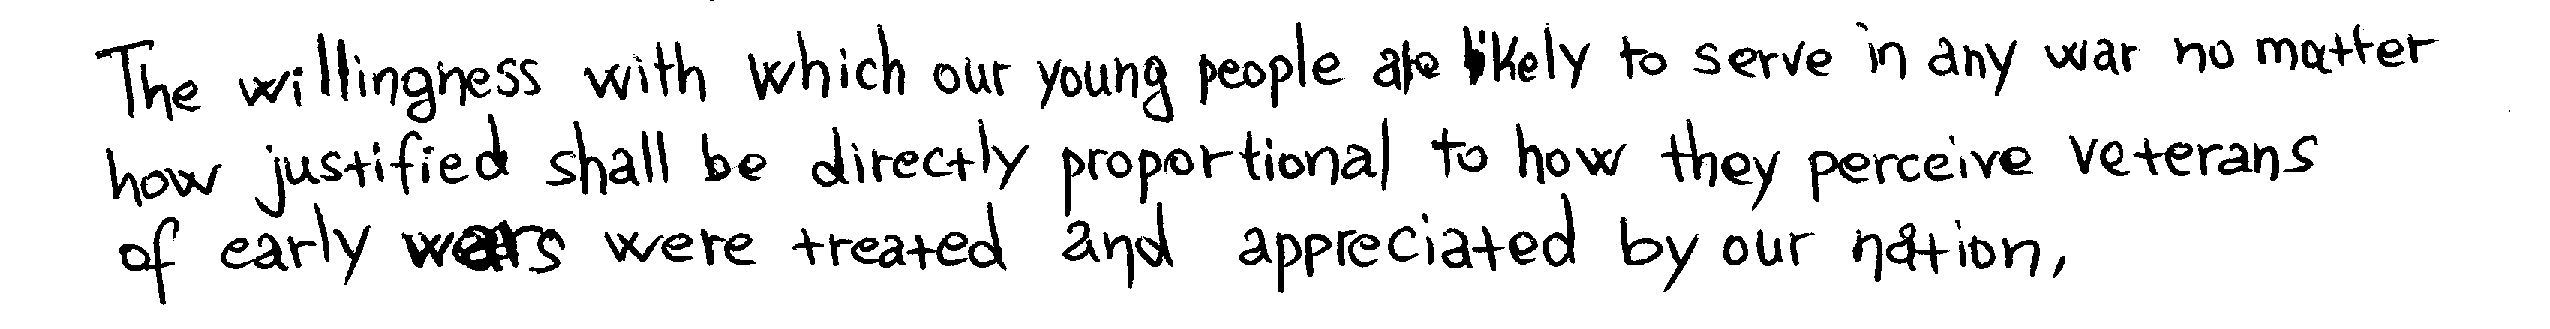 The willingness with which our young people are likely to serve in any war no matter
how justified shall be directly proportional to how they perceive veterans
of early wars were treated and appreciated by our nation,